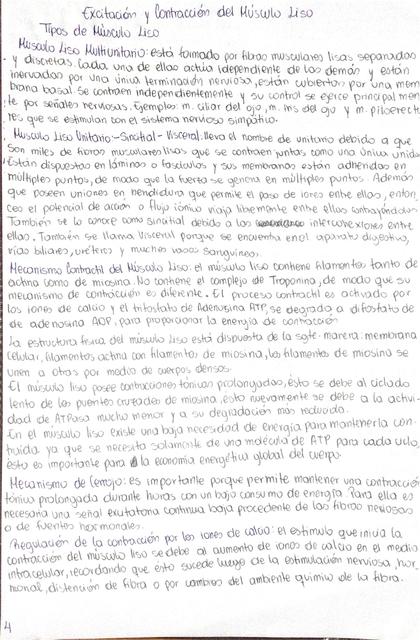 Excitación y Contracción del Músculo Liso
Tipos de Músculo Liso
Músculo Liso Multiunitario: está formado por fibras musculares lisas separadas
y discretas. Cada una de ellas actúa idependiente de las demás y están
inervadas por una única terminación nerviosa, están cubiertas por una mem
brana basal. Se contraen independientemente y su control se ejerce principal men
te por señales nerviosas. Ejemplos: m. ciliar del ojo, m. iris del ojo y m. piloerecto
res que se estimulan con el sistema nervioso simpático.
Músculo Liso Unitario-Sincitial-Visceral: lleva el nombre de unitario debido a que
son miles de fibras musculares lisas que se contraen juntas como una única unidad
Están dispuestas en láminas o fascículos y sus membranas están adheridas en
múltiples puntos, de modo que la fuerza se genera en múltiples puntos. Además
que poseen uniones en hendidura que permite el paso de iones entre ellas, enton
ces el potencial de acción o flujo iónico viaja libremente entre ellas contrayéndolas.
También se lo conoce como sincitial debido a las interconexiones entre
ellas. También se llama Visceral porque se encuentra en el aparato digestivo,
vías biliares, uréteros y muchos vasos sanguíneos.
Mecanismo Contractil del Músculo Liso: el músculo liso contiene filamentos tanto de
actina como de miosina. No contiene el complejo de Troponina, de modo que su
mecanismo de contracción es diferente. El proceso contractil es activado por
los iones de calcio y el trifosfato de Adenosina ATP, se degrada a difosfato de
de adenosina ADP, para proporcionar la energía de contracción
La estructura física del músculo liso está dispuesta de la sgte. manera: membrana
celular, filamentos actina con filamentos de miosina, los filamentos de miosina se
unen a otras por medio de cuerpos densos.
El músculo liso posee contracciones tónicas prolongadas, ésto se debe al ciclado
lento de los puentes cruzados de miosina, ésto nuevamente se debe a la activi-
dad de ATPasa mucho menor y a su degradación más reducida.
En el músculo liso existe una baja necesidad de energía para mantenerla con-
traida ya que se necesita solamente de una molécula de ATP para cada ciclo,
ésto es importante para la economía energética global del cuerpo.
Mecanismo de Cerrojo: es importante porque permite mantener una contracción
tónica prolongada durante horas con un bajo consumo de energía. Para ella es
necesaria una señal excitatoria continua baja procedente de las fibras nerviosas
o de fuentes hormonales.
Regulación de la contracción por los iones de calcio: el estímulo que inicia la
contracción del músculo liso se debe al aumento de iones de calcio en el medio
intracelular, recordando que ésto sucede luego de la estimulación nerviosa, hor
monal, distención de fibra o por cambios del ambiente químico de la fibra.
4